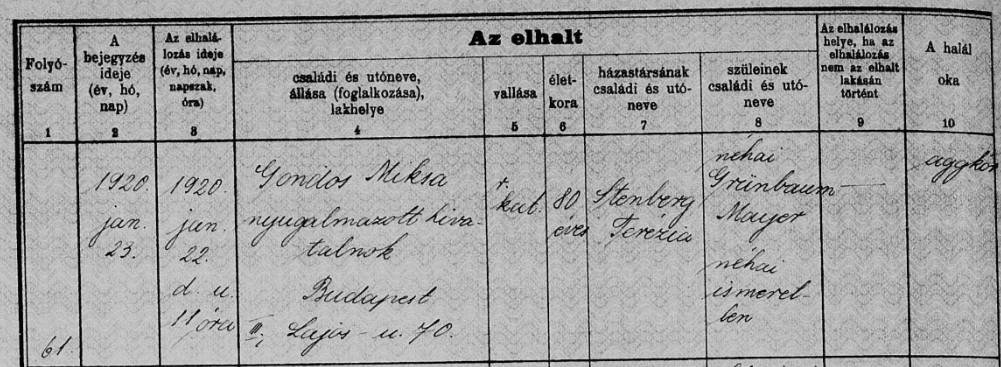 Az elhalt
Folyó-
szám
1
A
bejegyzés
ideje
(év, hó,
nap)
2
Az elhalá-
lozás ideje
(év, hó, nap,
napszak,
óra)
3
családi és utóneve,
állása (foglalkozása),
lakhelye
4
vallása
5
élet-
kora
6
házastársának
családi és utó-
neve
7
szüleinek
családi és utó-
neve
8
Az elhalálozás
helye, ha az
elhalálozás
nem az elhalt
lakásán
történt
9
A halál
oka
10
61.
1920.
jan.
23.
1920.
jan.
22.
d. u.
11 óra
Gondos Miksa
nyugalmazott hiva-
talnok
Budapest
III, Lajos-u. 70.
kat.
80
éves
Stenberg
Terézia
néhai
Grünbaum
Mayer
néhai
ismeret-
len
aggkór